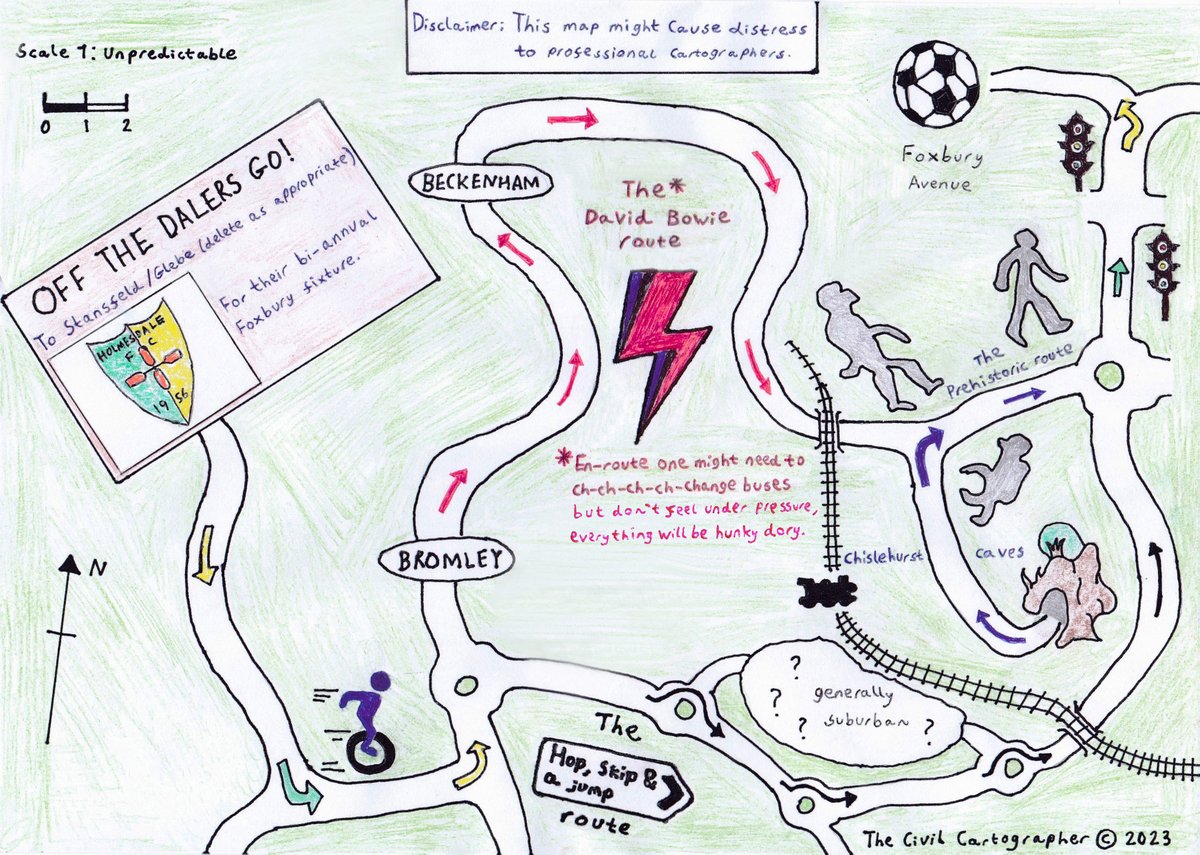 Disclaimer: This map might cause distress
to professional cartographers.
Scale 1: Unpredictable
0 1 2
OFF THE DALERS GO!
To Stansfeld/Glebe (delete as appropriate)
For their bi-annual
Foxbury fixture.
HOLMESDALE
F C
19 56
BECKENHAM
The*
David Bowie
route
*En-route one might need to
ch-ch-ch-ch-change buses
but don't feel under pressure,
everything will be hunky dory.
Foxbury
Avenue
The
Prehistoric route
Chislehurst caves
BROMLEY
N
? generally ?
? suburban ?
The
Hop, Skip &
a jump
route
The Civil Cartographer © 2023